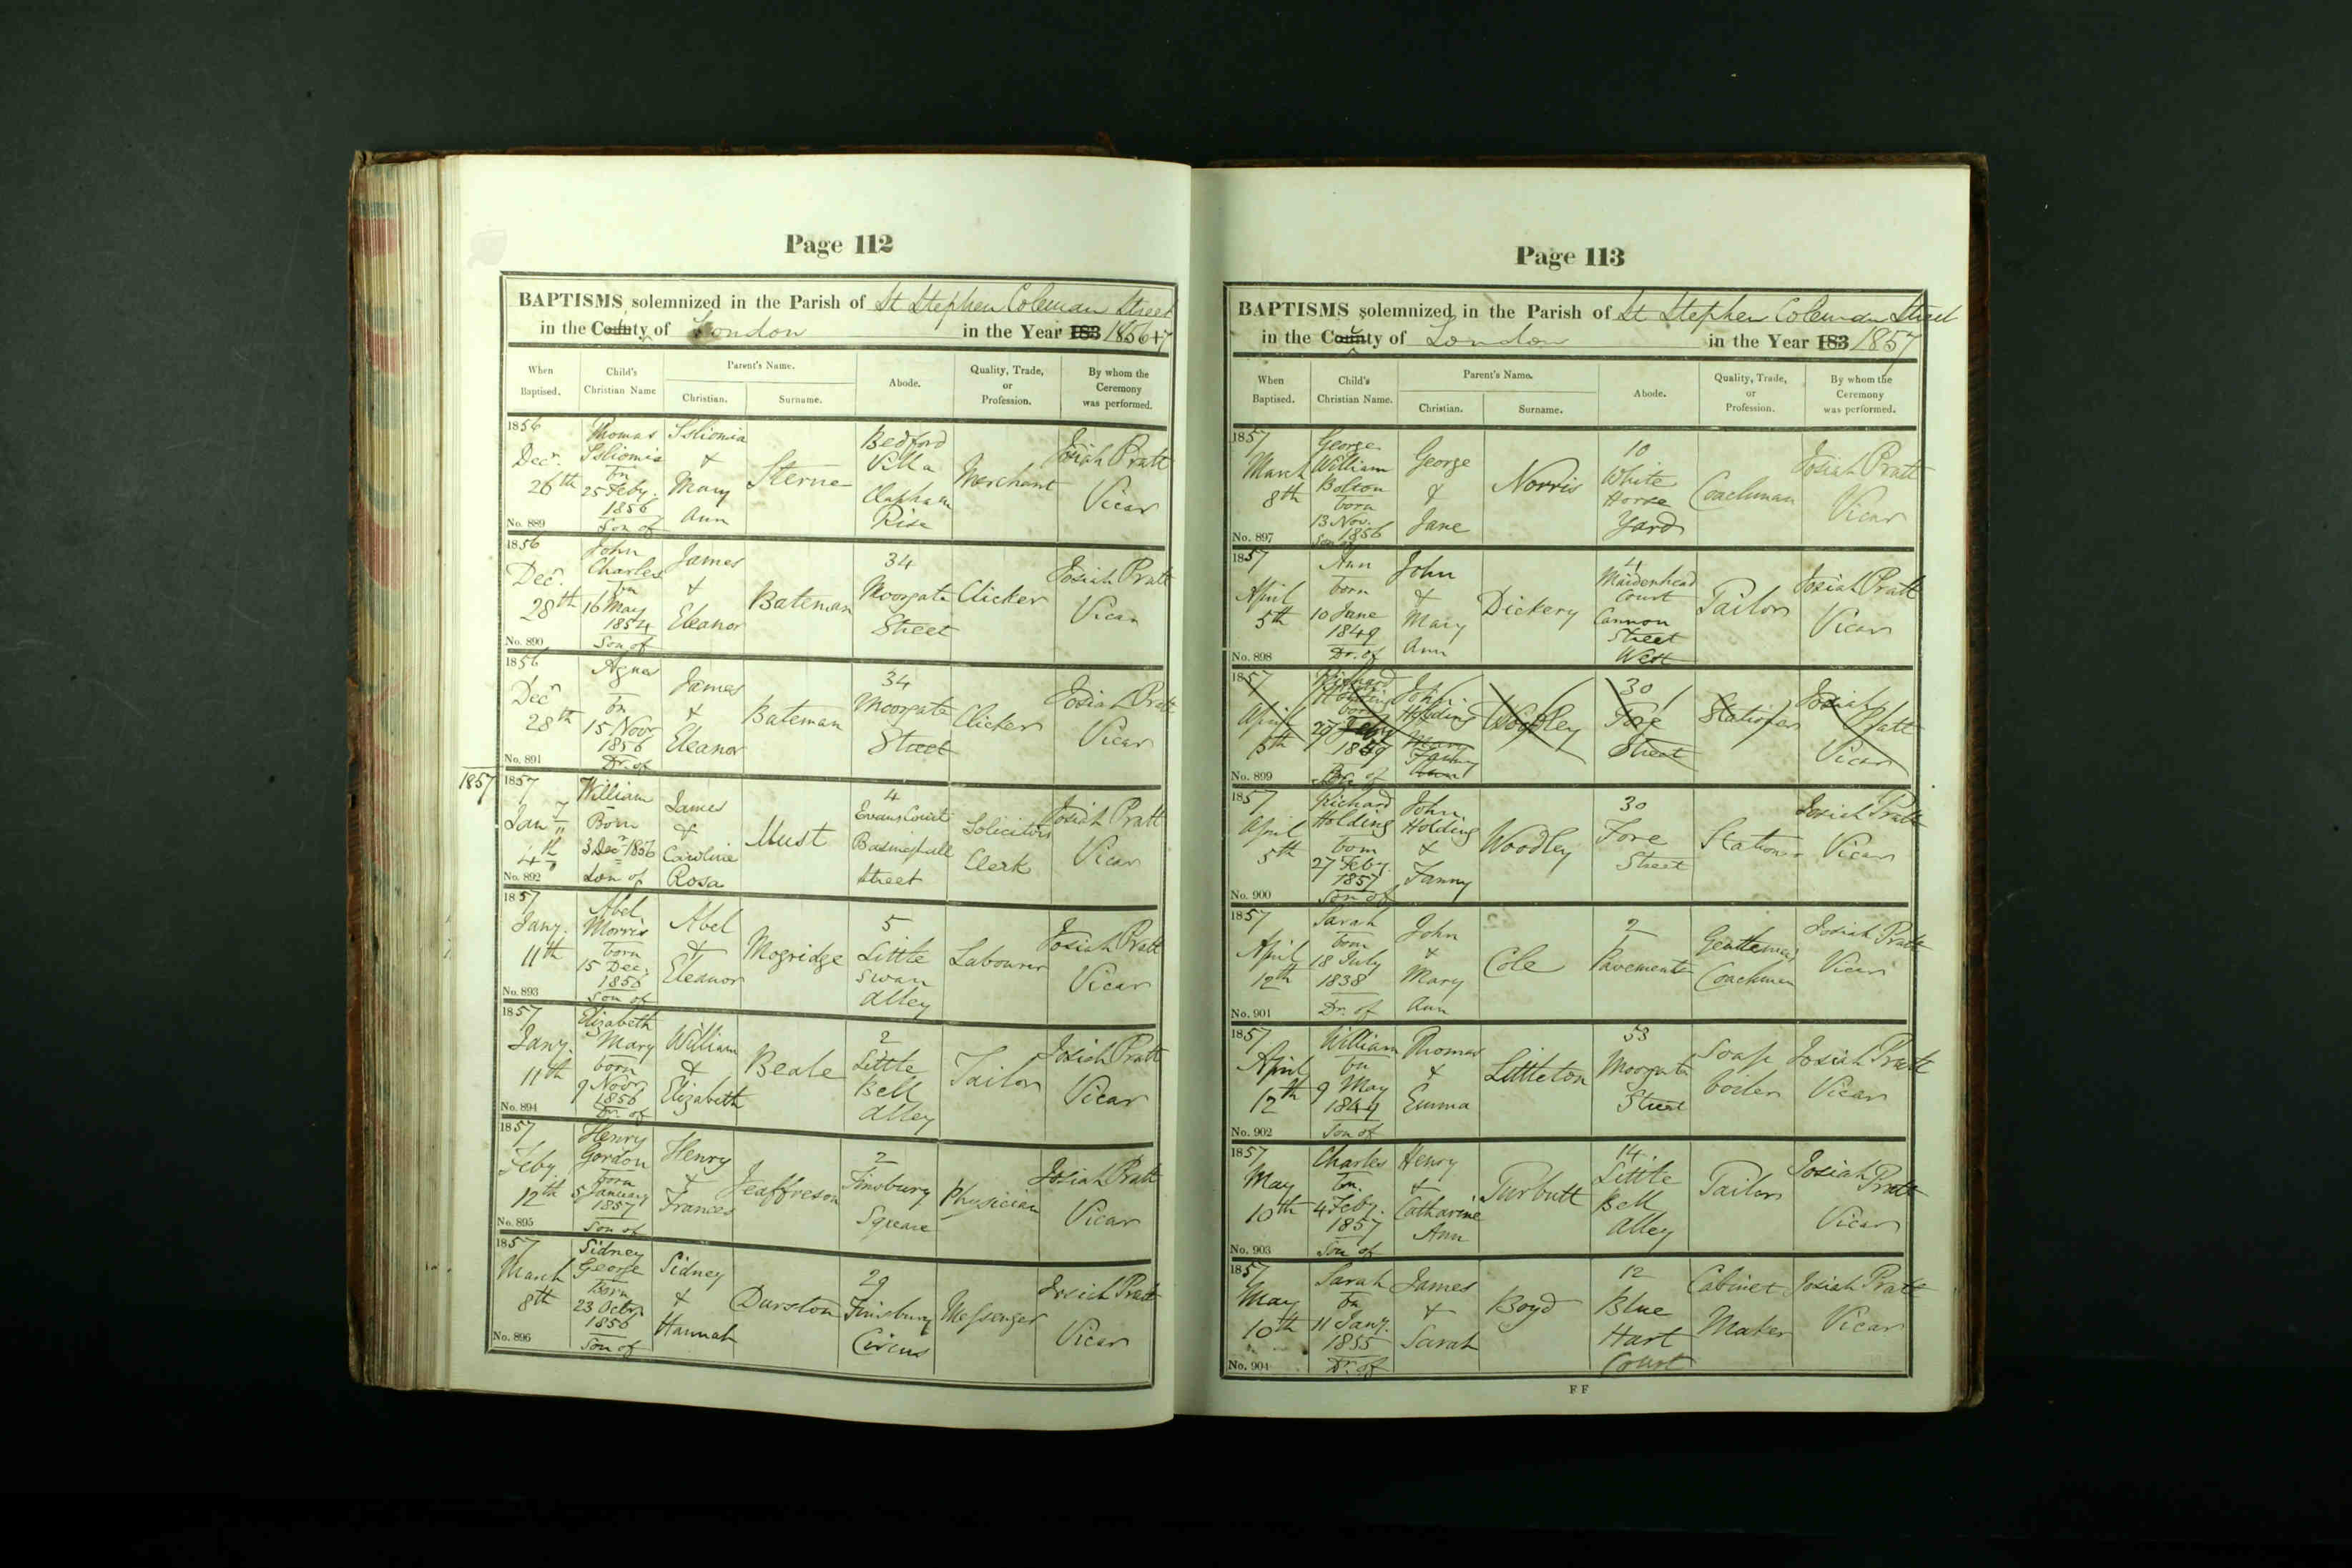 Page 112
BAPTISMS solemnized in the Parish of St Stephen Coleman Street
in the City of London in the Year 1856+7
When Baptised.
Child's Christian Name
Parent's Name.
Christian.
Surname.
Abode.
Quality, Trade, or Profession.
By whom the Ceremony was performed.
1856
Decr.
26th
No. 889
Thomas
bn
25 Feby.
1856
Son of
&
Mary
Ann
Sterne
Bedford
Villa
Clapham
Rise
Merchant
Josiah Pratt
Vicar
1856
Decr.
28th
No. 890
John
Charles
bn
16 May
1854
Son of
James
&
Eleanor
Bateman
34
Moorgate
Street
Clicker
Josiah Pratt
Vicar
1856
Decr
28th
No. 891
Agnes
bn
15 Novr
1856
Dr. of
James
&
Eleanor
Bateman
34
Moorgate
Street
Clicker
Josiah Pratt
Vicar
1857
1857
Jany
4th
No. 892
William
Born
3 Decr 1856
Son of
James
&
Caroline
Rosa
Must
4
Evans Court
Basinghall
Street
Solicitors
Clerk
Josiah Pratt
Vicar
1857
Jany.
11th
No. 893
Abel
Morris
born
15 Dec.
1856
Son of
Abel
&
Eleanor
Mogridge
5
Little
Swan
Alley
Labourer
Josiah Pratt
Vicar
1857
Jany.
11th
No. 894
Elizabeth
Mary
born
9 Novr
1856
Dr. of
William
&
Elizabeth
Beale
2
Little
Bell
Alley
Tailor
Josiah Pratt
Vicar
1857
Feby.
12th
No. 895
Henry
Gordon
born
5 January
1857
Son of
Henry
&
Frances
Jeaffreson
2
Finsbury
Square
Physician
Josiah Pratt
Vicar
1857
March
8th
No. 896
Sidney
George
Born
23 Octr.
1856
Son of
Sidney
&
Hannah
Durston
29
Finsbury
Circus
Messenger
Josiah Pratt
Vicar
Page 113
BAPTISMS solemnized in the Parish of St Stephen Coleman Street
in the City of London in the Year 1857
When Baptised.
Child's Christian Name.
Parent's Name.
Christian.
Surname.
Abode.
Quality, Trade, or Profession.
By whom the Ceremony was performed.
1857
March
8th
No. 897
George
William
Bolton
born
13 Nov.
1856
Son of
George
&
Jane
Norris
10
White
Horse
Yard
Coachman
Josiah Pratt
Vicar
1857
April
5th
No. 898
Ann
born
10 June
1849
Dr. of
John
&
Mary
Ann
Dickery
4
Maidenhead
Court
Cannon
Street
West
Tailor
Josiah Pratt
Vicar
1857
April
5th
No. 899
Richard
Holding
born
27
1857
John
Holding
Fanny
Woodley
30
Fore
Street
Stationer
Josiah
Pratt
Vicar
1857
April
5th
No. 900
Richard
Holding
born
27 Feby.
1857
Son of
John
Holding
&
Fanny
Woodley
30
Fore
Street
Stationer
Josiah Pratt
Vicar
1857
April
12th
No. 901
Sarah
born
18 July
1838
Dr. of
John
&
Mary
Ann
Cole
2
Pavement
Gentlemans
Coachman
Josiah Pratt
Vicar
1857
April
12th
No. 902
William
bn
9 May
1849
Son of
Thomas
&
Emma
Littleton
53
Moorgate
Street
Soap
boiler
Josiah Pratt
Vicar
1857
May
10th
No. 903
Charles
bn.
4 Feby.
1857
Son of
Henry
&
Catharine
Ann
Turbutt
14.
Little
Bell
Alley
Tailor
Josiah Pratt
Vicar
1857
May
10th
No. 904
Sarah
bn
11 Jany.
1855
Dr. of
James
&
Sarah
Boyd
12
Blue
Hart
Court
Cabinet
Maker
Josiah Pratt
Vicar
F F